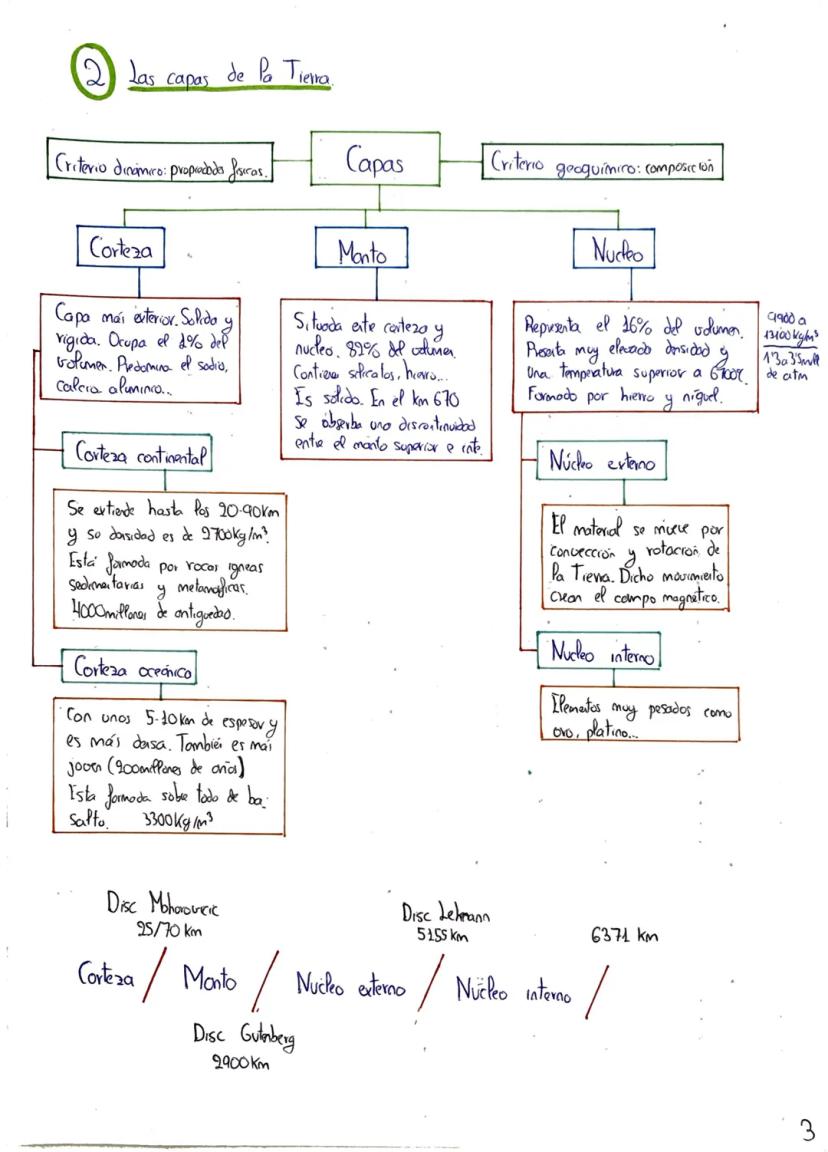 2 Las capas de la Tierra.
Criterio dinámico: propiedades físicas.
Capas
Criterio geoquímico: composición
Corteza
Manto
Nucleo
Capa más exterior. Solida y
rígida. Ocupa el 1% del
volumen. Predomina el sodio,
calcio aluminio...
Situada entre corteza y
nucleo. 82% del volumen.
Contiene silicatos, hierro...
Es solido. En el km 670
se observa una discontinuidad
entre el manto superior e inte.
Representa el 16% del volumen.
Presenta muy elevada densidad y
una temperatura superior a 6700ºC.
Formado por hierro y níquel.
9900 a
13100 kg/m³
1'3 a 3'5 mill
de atm
Corteza continental
Se extiende hasta los 20-90km
y su densidad es de 2700kg/m³.
Está formada por rocas igneas
sedimentarias y metamorficas.
4000 millones de antiguedad.
Corteza oceánica
Con unos 5-10 km de espesor y
es más densa. También es más
joven (200 millones de años)
Esta formada sobre todo de ba-
salto. 3300 Kg/m³
Núcleo externo
El material se mueve por
convección y rotación de
la Tierra. Dicho movimiento
crean el campo magnético.
Nucleo interno
Elementos muy pesados como
oro, platino...
Disc Mohorovicic
25/70 km
Disc Lehmann
5155 km
6371 km
Corteza / Manto / Nucleo externo / Nucleo interno /
Disc Gutenberg
2900 km
3